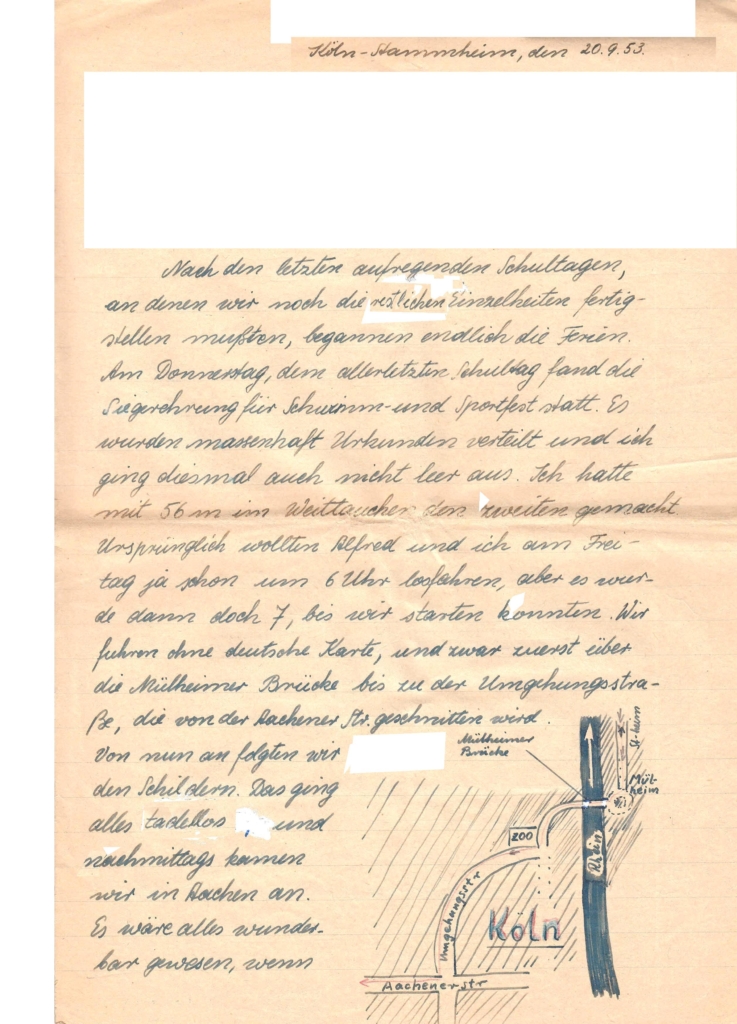 Köln-Stammheim, den 20.9.53.
Nach den letzten aufregenden Schultagen,
an denen wir noch die restlichen Einzelheiten fertig-
stellen mußten, begannen endlich die Ferien.
Am Donnerstag, dem allerletzten Schultag fand die
Siegerehrung für Schwimm- und Sportfest statt. Es
wurden massenhaft Urkunden verteilt und ich
ging diesmal auch nicht leer aus. Ich hatte
mit 56 m im Weittauchen den zweiten gemacht
Ursprünglich wollten Alfred und ich am Frei-
tag ja schon um 6 Uhr losfahren, aber es wur-
de dann doch 7, bis wir starten konnten. Wir
fuhren ohne deutsche Karte, und zwar zuerst über
die Mülheimer Brücke bis zu der Umgehungsstra-
ße, die von der Aachener Str. geschnitten wird.
Von nun an folgten wir
den Schildern. Das ging
alles tadellos und
nachmittags kamen
wir in Aachen an.
Es wäre alles wunder-
bar gewesen, wenn
Mülheimer
Brücke
St-heim
Mül-
heim
ZOO
Rhein
Umgehungsstr
Köln
Aachenerstr